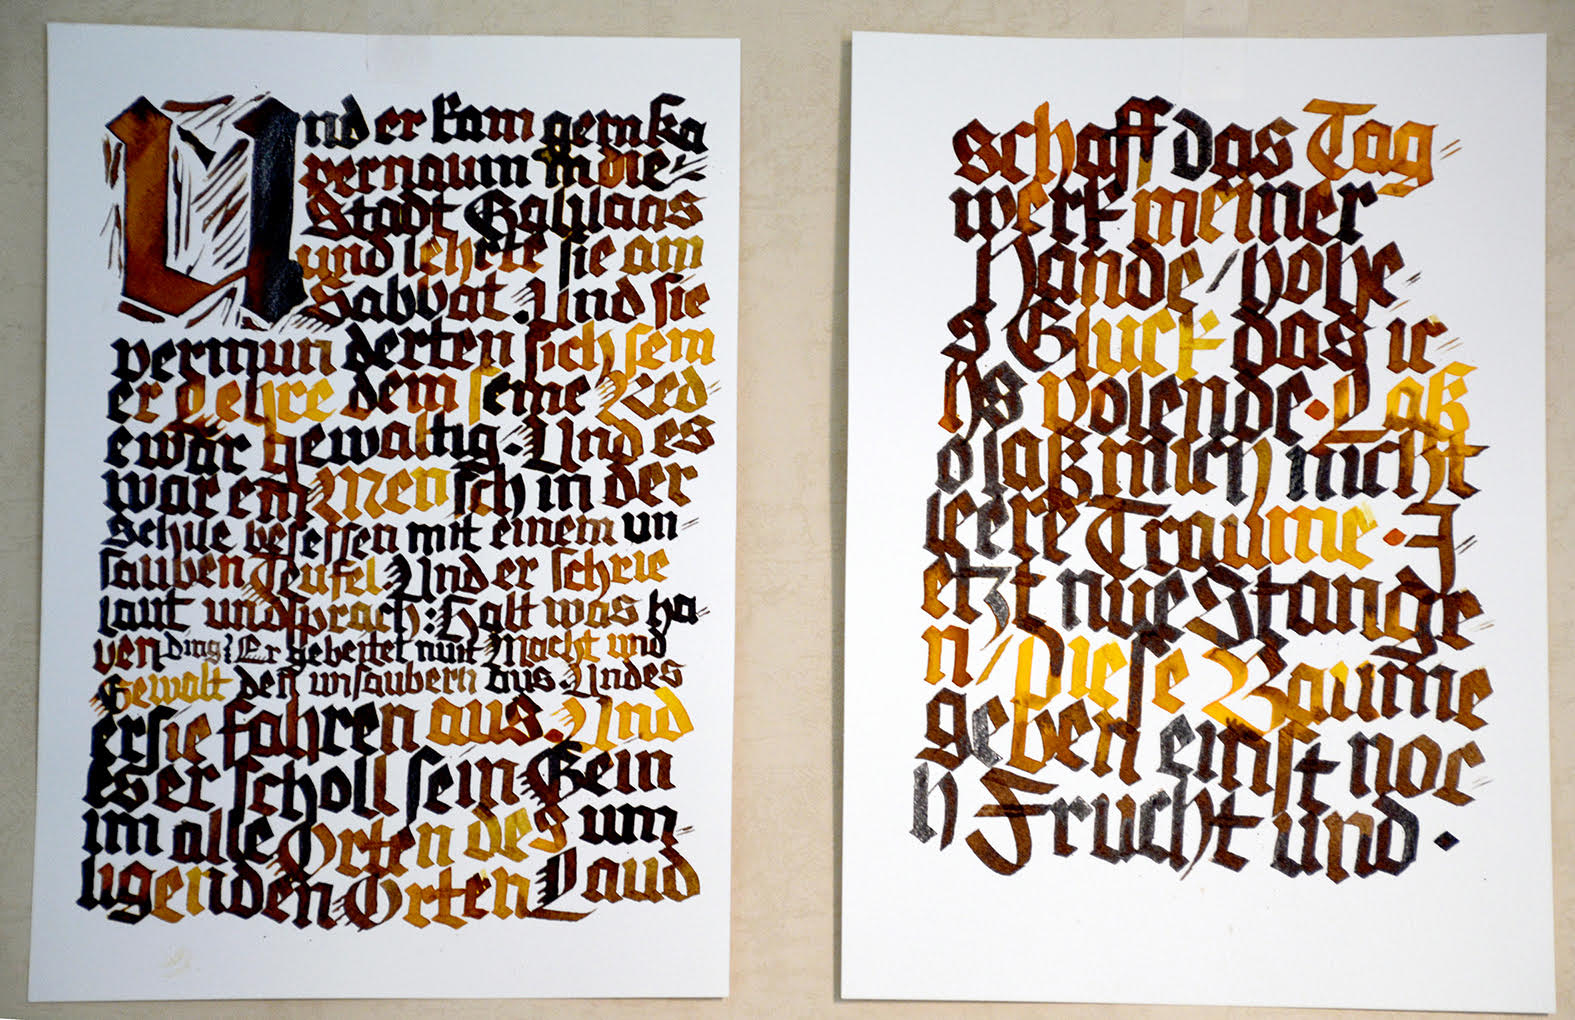 Und er kam gem ka
pernaum in die
Stadt Galilaas
und lehrte sie am
Sabbat. Und sie
vermun derten sich sein
er Lehre dem seine Red
e war gewaltig. Und es
war em Mensch in der
Schule besessen mit einem un
sauben Teufel Und er schrie
laut und sprach: Halt was ha
ben ding? Er gebeitet mit Macht und
Gewalt den unsaubern aus. Und es
er sie fahren aus. Und
es er scholl sein Gein
im alle Orten des um
ligenden Orten Laud
schaff das Tag
werk meiner
Hande / hohe
s Gluck das ic
hs volende. Laß
o laß mich nicht
leere Traume. J
etzt nue Stange
n / Diese Baume
geben einst noc
h Frucht und.